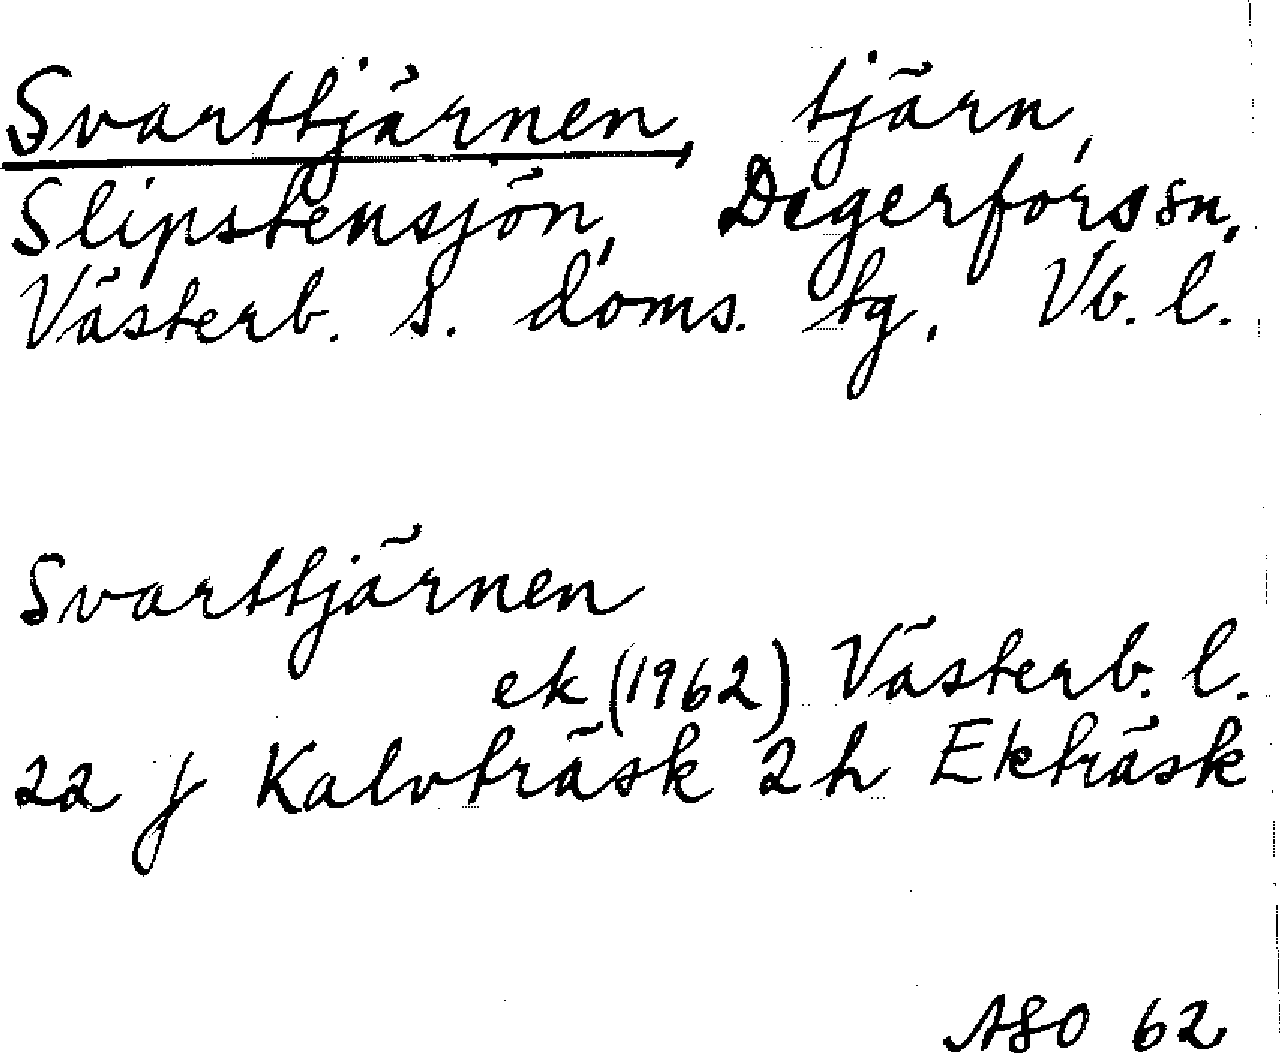 Svarttjärnen, tjärn,
Slipstensjön, Degerfors sn,
Västerb. s. doms. tg, Vb. l.
Svarttjärnen
ek (1962) Västerb. l.
22 j Kalvträsk 2h Ekträsk
ASO 62